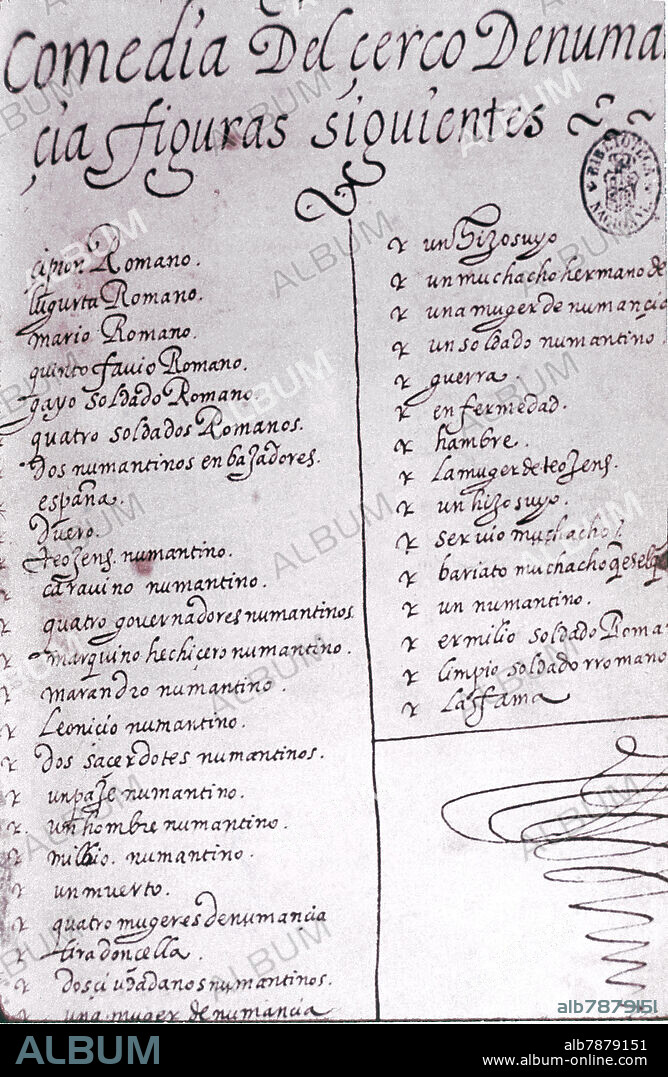 Comedia Del çerco Denuma
çia figuras siguientes
BIBLIOTECA NACIONAL
sipion Romano.
Iugurta Romano.
mario Romano.
quinto favio Romano.
gayo soldado Romano.
quatro soldados Romanos.
Dos numantinos enbajadores.
españa.
Duero.
teojens. numantino.
caravino numantino.
quatro governadores numantinos
marquino hechicero numantino.
marandro numantino.
Leonicio numantino.
Dos sacerdotes numantinos.
un paje numantino.
un hombre numantino.
milbio. numantino.
un muerto.
quatro mugeres denumancia
lira doncella.
dos ciudadanos numantinos.
una muger de numancia
un hijo suyo
un muchacho hermano de
una muger de numancia
un soldado numantino
guerra.
enfermedad.
hambre.
La muger de teojens.
un hijo suyo.
servio muchacho
bariato muchacho qes elq
un numantino.
ermilio soldado Roma
limpio soldado rromano
La ffama
ALBUM
alb7879151
ALBUM
alb7879151
www.album-online.com